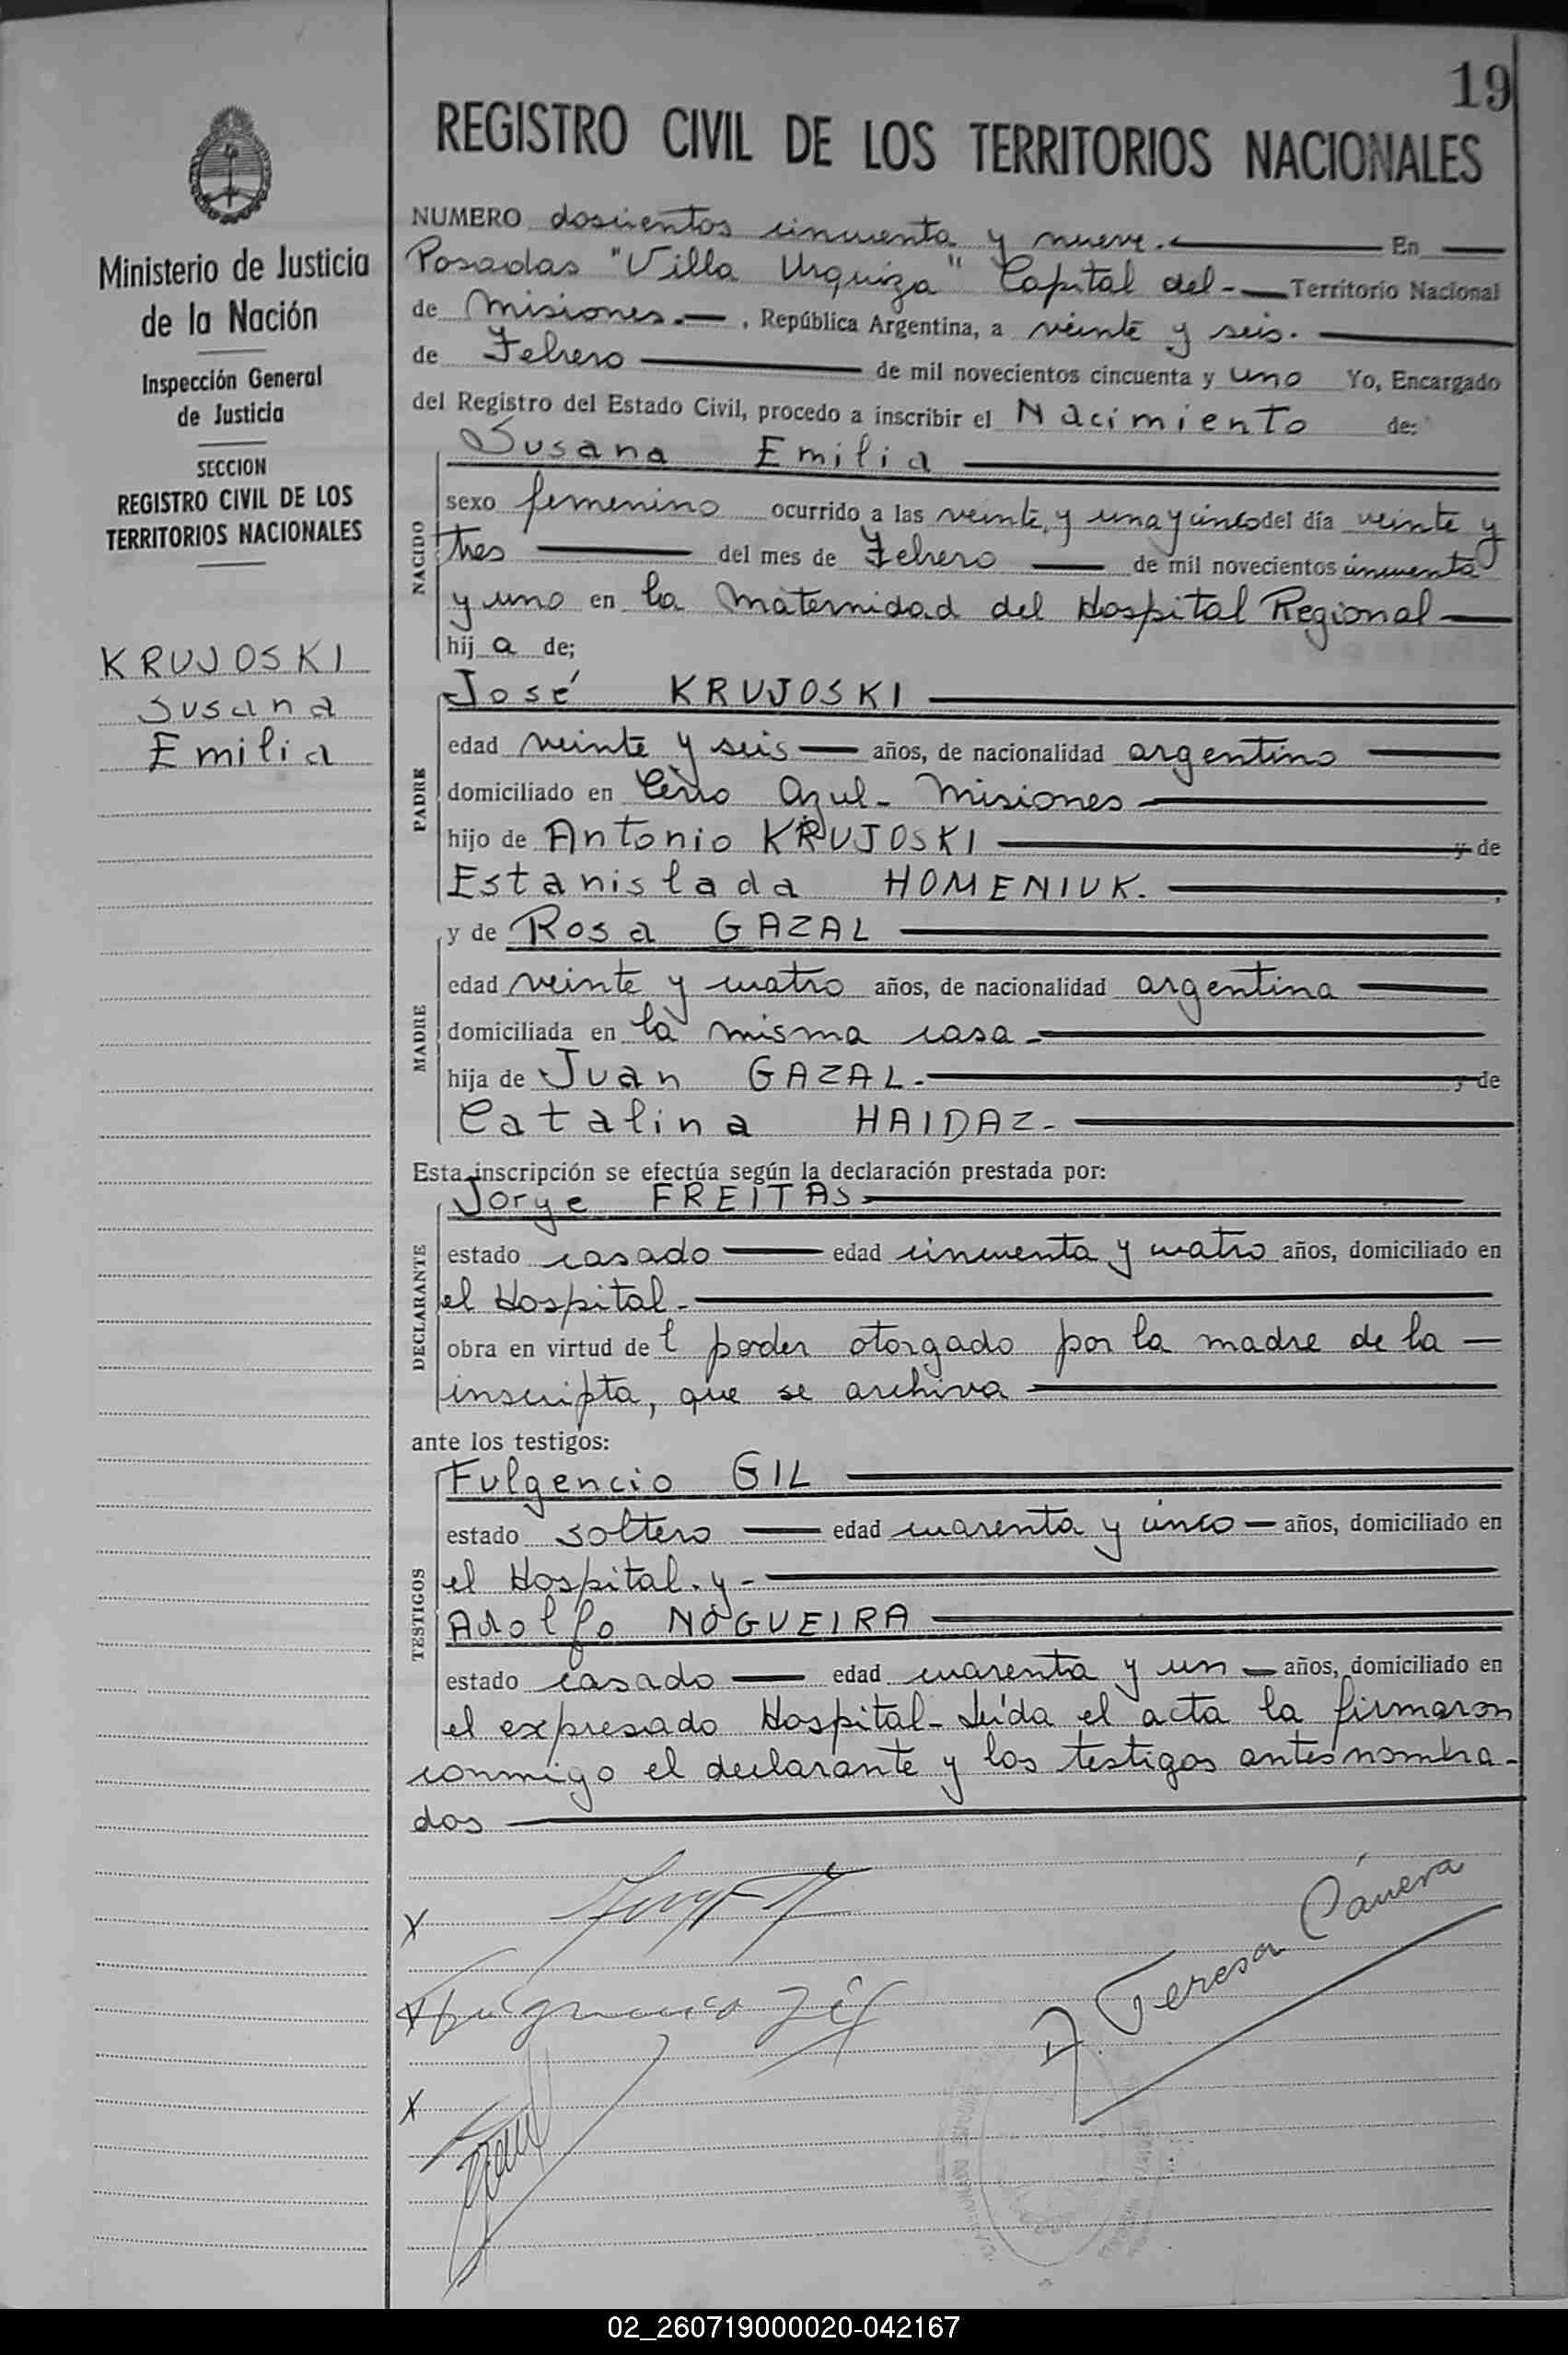 19
REGISTRO CIVIL DE LOS TERRITORIOS NACIONALES
Ministerio de Justicia
de la Nación
Inspección General
de Justicia
SECCION
REGISTRO CIVIL DE LOS
TERRITORIOS NACIONALES
KRUJOSKI
Susana
Emilia
NUMERO doscientos cincuenta y nueve. En
Posadas "Villa Urquiza" Capital del - Territorio Nacional
de Misiones. - , República Argentina, a veinte y seis.
de Febrero de mil novecientos cincuenta y uno Yo, Encargado
del Registro del Estado Civil, procedo a inscribir el Nacimiento de:
Susana Emilia
NACIDO
sexo femenino ocurrido a las veinte y una y cinco del día veinte y
tres del mes de Febrero de mil novecientos cincuenta
y uno en la Maternidad del Hospital Regional
hij a de;
José KRUJOSKI
PADRE
edad veinte y seis años, de nacionalidad argentino
domiciliado en Cerro Azul - Misiones
hijo de Antonio KRUJOSKI y de
Estanislada HOMENIUK.
y de Rosa GAZAL
MADRE
edad veinte y cuatro años, de nacionalidad argentina
domiciliada en la misma casa -
hija de Juan GAZAL. y de
Catalina HAIDAZ -
Esta inscripción se efectúa según la declaración prestada por:
Jorge FREITAS
DECLARANTE
estado casado edad cincuenta y cuatro años, domiciliado en
el Hospital -
obra en virtud de l poder otorgado por la madre de la
inscripta, que se archiva
ante los testigos:
Fulgencio GIL
TESTIGOS
estado soltero edad cuarenta y cinco años, domiciliado en
el Hospital. y -
Adolfo NOGUEIRA
estado casado edad cuarenta y un años, domiciliado en
el expresado Hospital - Leída el acta la firmaron
conmigo el declarante y los testigos antes nombra-
dos
x
x Fulgencio Gil
A. Teresa Cánera
x
02_260719000020-042167